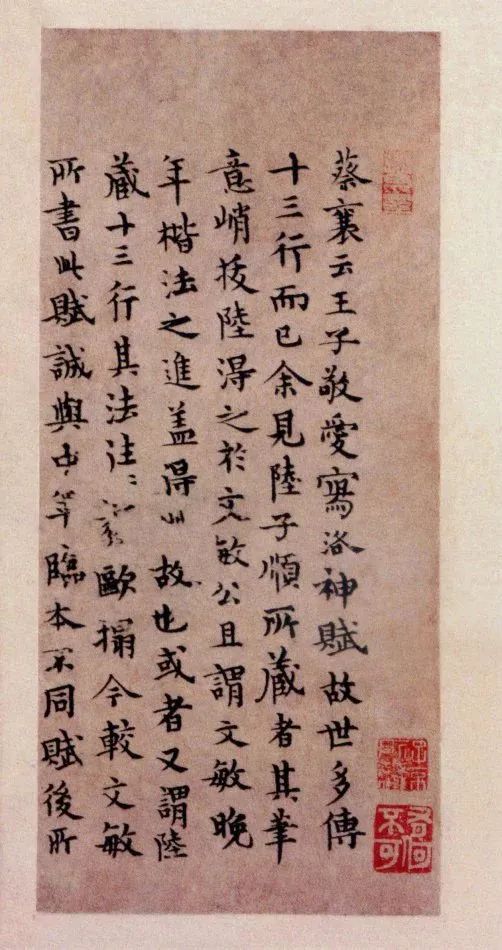 蔡襄云王子敬愛寫洛神賦故世多傳
十三行而已余見陸子順所藏者其筆
意峭拔陸得之於文敏公且謂文敏晚
年楷法之進盖得此故也或者又謂陸
藏十三行其法往〻歐搨今較文敏
所書此賦誠與中年臨本不同賦後所
有何不可